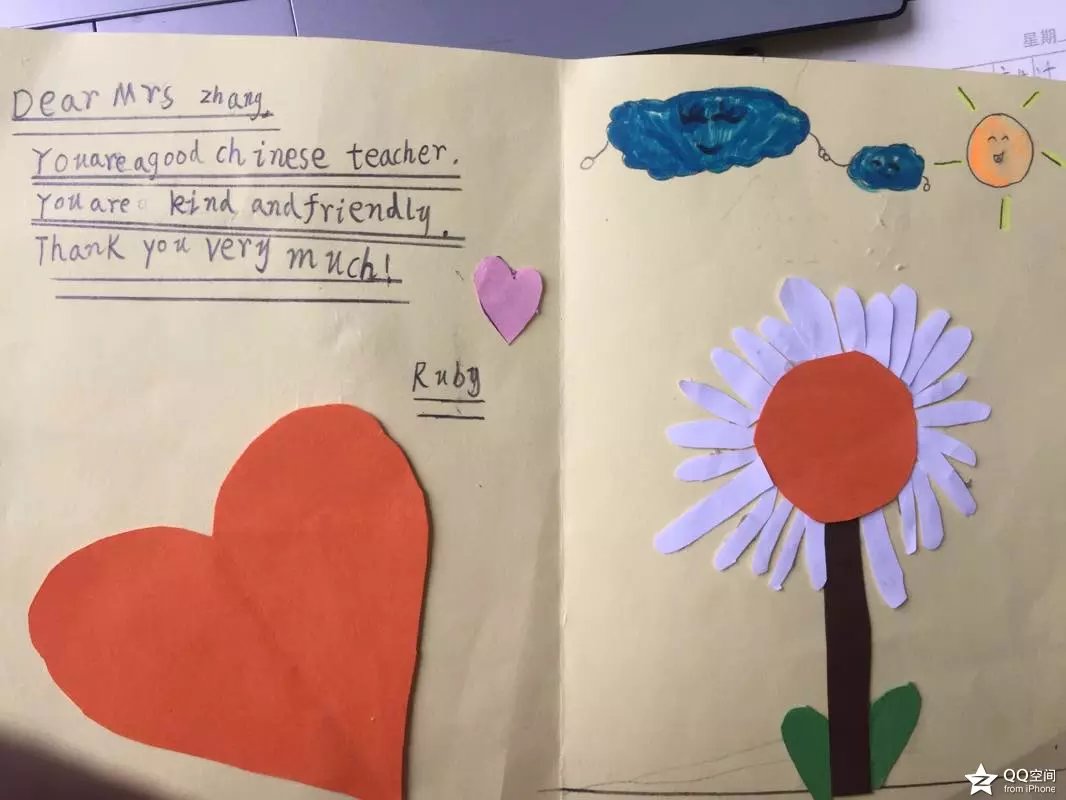 Dear Mrs zhang.
You are a good chinese teacher.
You are kind and friendly.
Thank you very much!
Ruby
星期
QQ空间
from iPhone